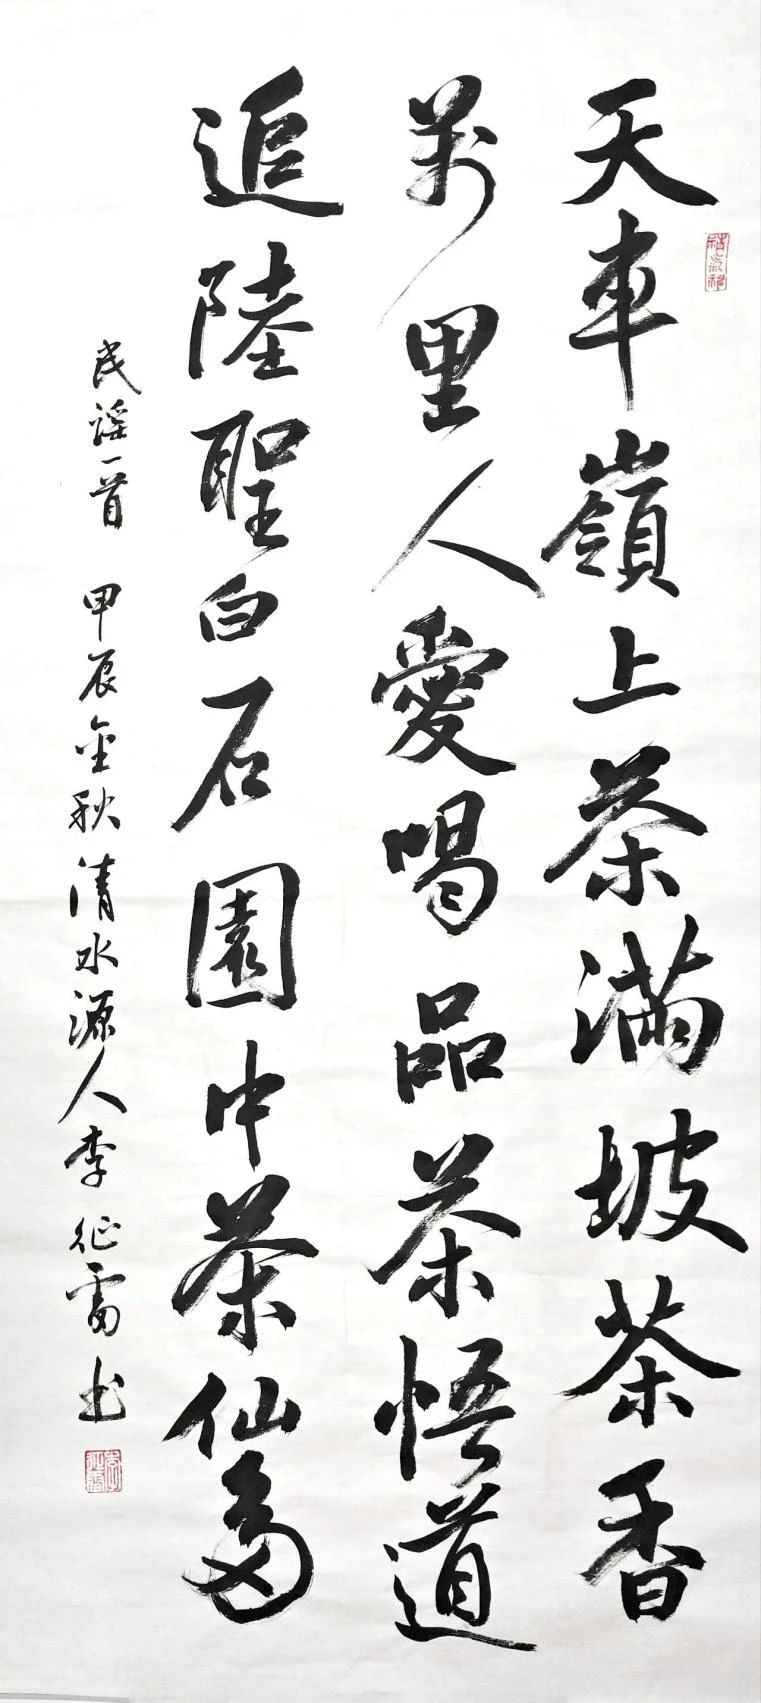 天車嶺上茶滿坡茶香
萬里人愛喝品茶悟道
追陸聖白石園中茶仙多
民謠一首 甲辰金秋清水源人李征雷书